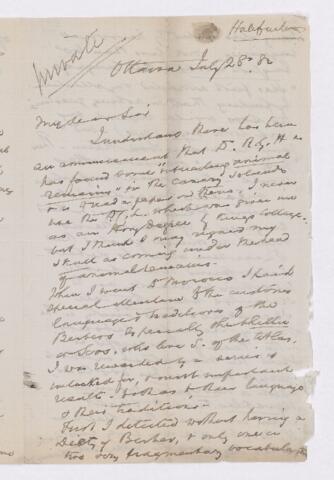 Haliburton
private
Ottawa July 28th 82
My dear Sir
I understand there has been
an announcement that Dr. R. G. H. as
has found some interesting animal
remains in the Canary Islands
& is to read a paper on them. I never
was the D.C.L. which was given me
as an Hony Degree by Kings College.
but I think I may regard my
skull as coming under the head
of animal remains.
When I went to Morocco I paid
special attention to the customs
language & traditions of the
Berbers especially the
who live S. of the Atlas.
I was rewarded by a series of
unlooked for, & most important
results both as to their language
& their traditions.
First I detected without having a
Dicty of Berber, & only one or
two very fragmentary vocabularies